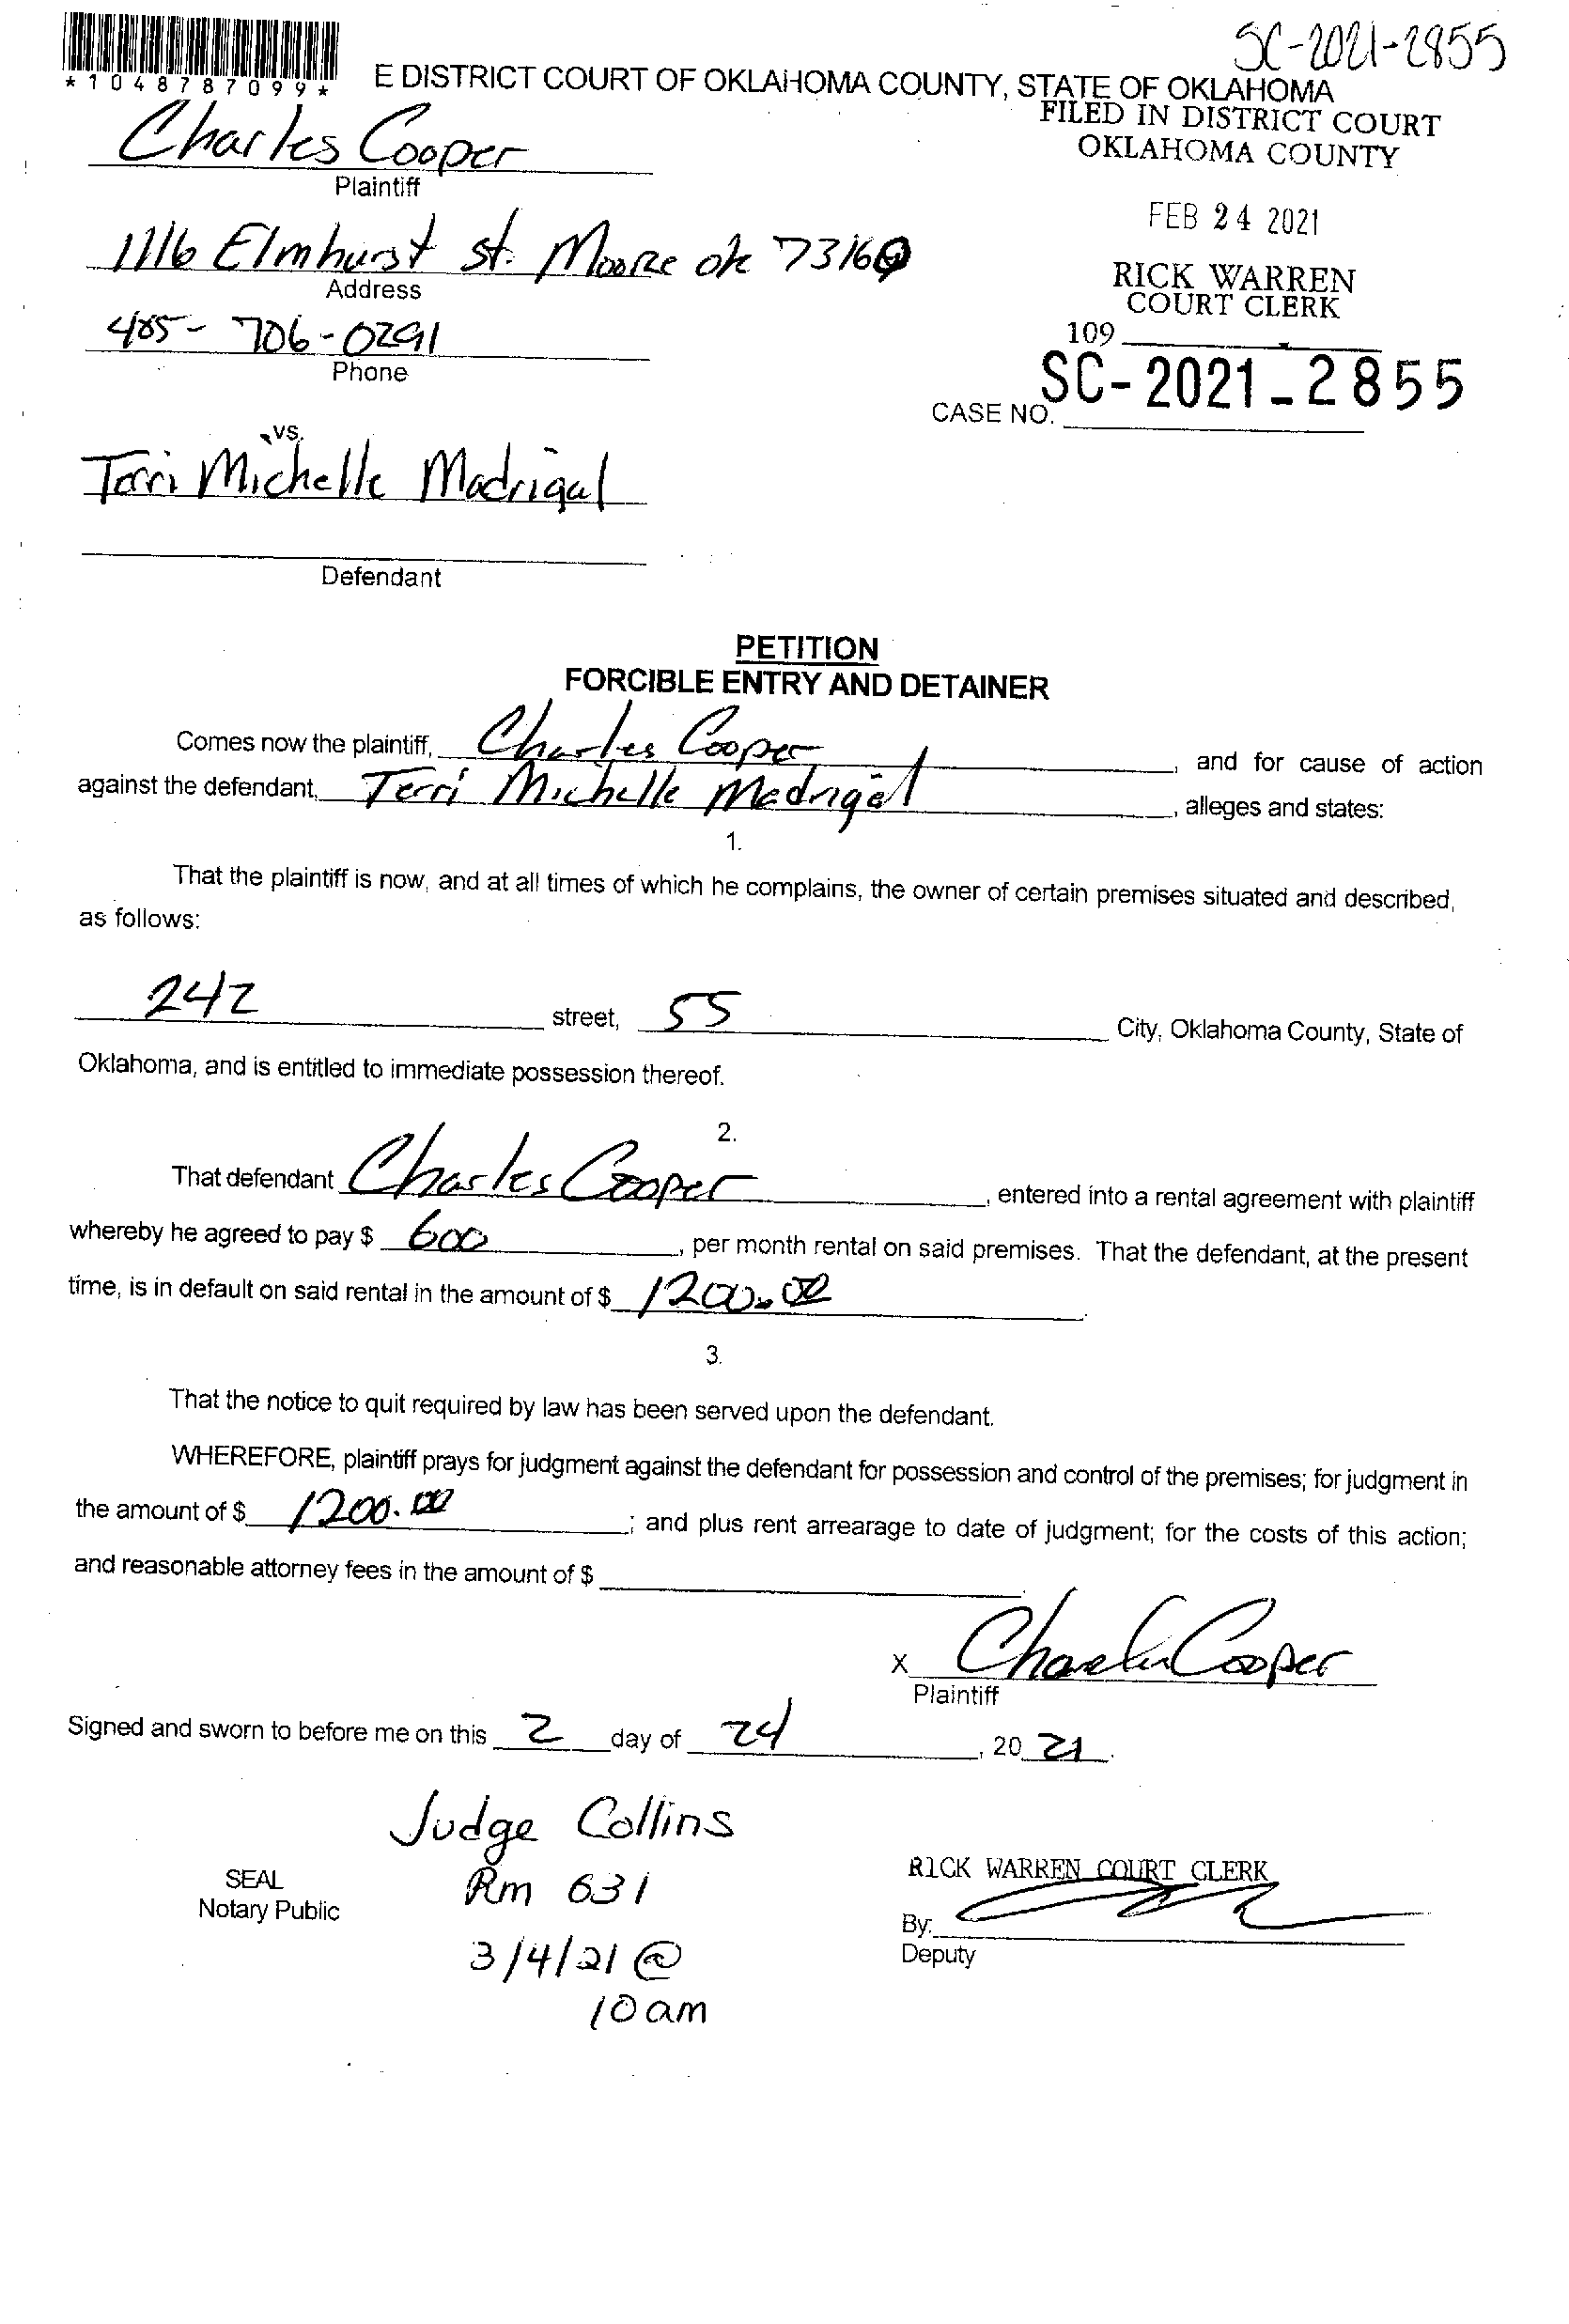 SC-2021-2855
*1048787099*
E DISTRICT COURT OF OKLAHOMA COUNTY, STATE OF OKLAHOMA
FILED IN DISTRICT COURT
OKLAHOMA COUNTY
Charles Cooper
Plaintiff
FEB 24 2021
1116 Elmhurst st. Moore ok 73160
Address
RICK WARREN
COURT CLERK
405-706-0291
109
Phone
CASE NO. SC-2021-2855
vs.
Terri Michelle Madrigal
Defendant
PETITION
FORCIBLE ENTRY AND DETAINER
Comes now the plaintiff, Charles Cooper, and for cause of action
against the defendant, Terri Michelle Madrigal, alleges and states:
1.
That the plaintiff is now, and at all times of which he complains, the owner of certain premises situated and described,
as follows:
242 street, 55 City, Oklahoma County, State of
Oklahoma, and is entitled to immediate possession thereof.
2.
That defendant Charles Cooper, entered into a rental agreement with plaintiff
whereby he agreed to pay $ 600, per month rental on said premises. That the defendant, at the present
time, is in default on said rental in the amount of $ 1200.00.
3.
That the notice to quit required by law has been served upon the defendant.
WHEREFORE, plaintiff prays for judgment against the defendant for possession and control of the premises; for judgment in
the amount of $ 1200.00; and plus rent arrearage to date of judgment; for the costs of this action;
and reasonable attorney fees in the amount of $
X Charles Cooper
Plaintiff
Signed and sworn to before me on this 2 day of 24, 20 21.
Judge Collins
Rm 631
3/4/21 @
10am
SEAL
Notary Public
RICK WARREN COURT CLERK
By:
Deputy